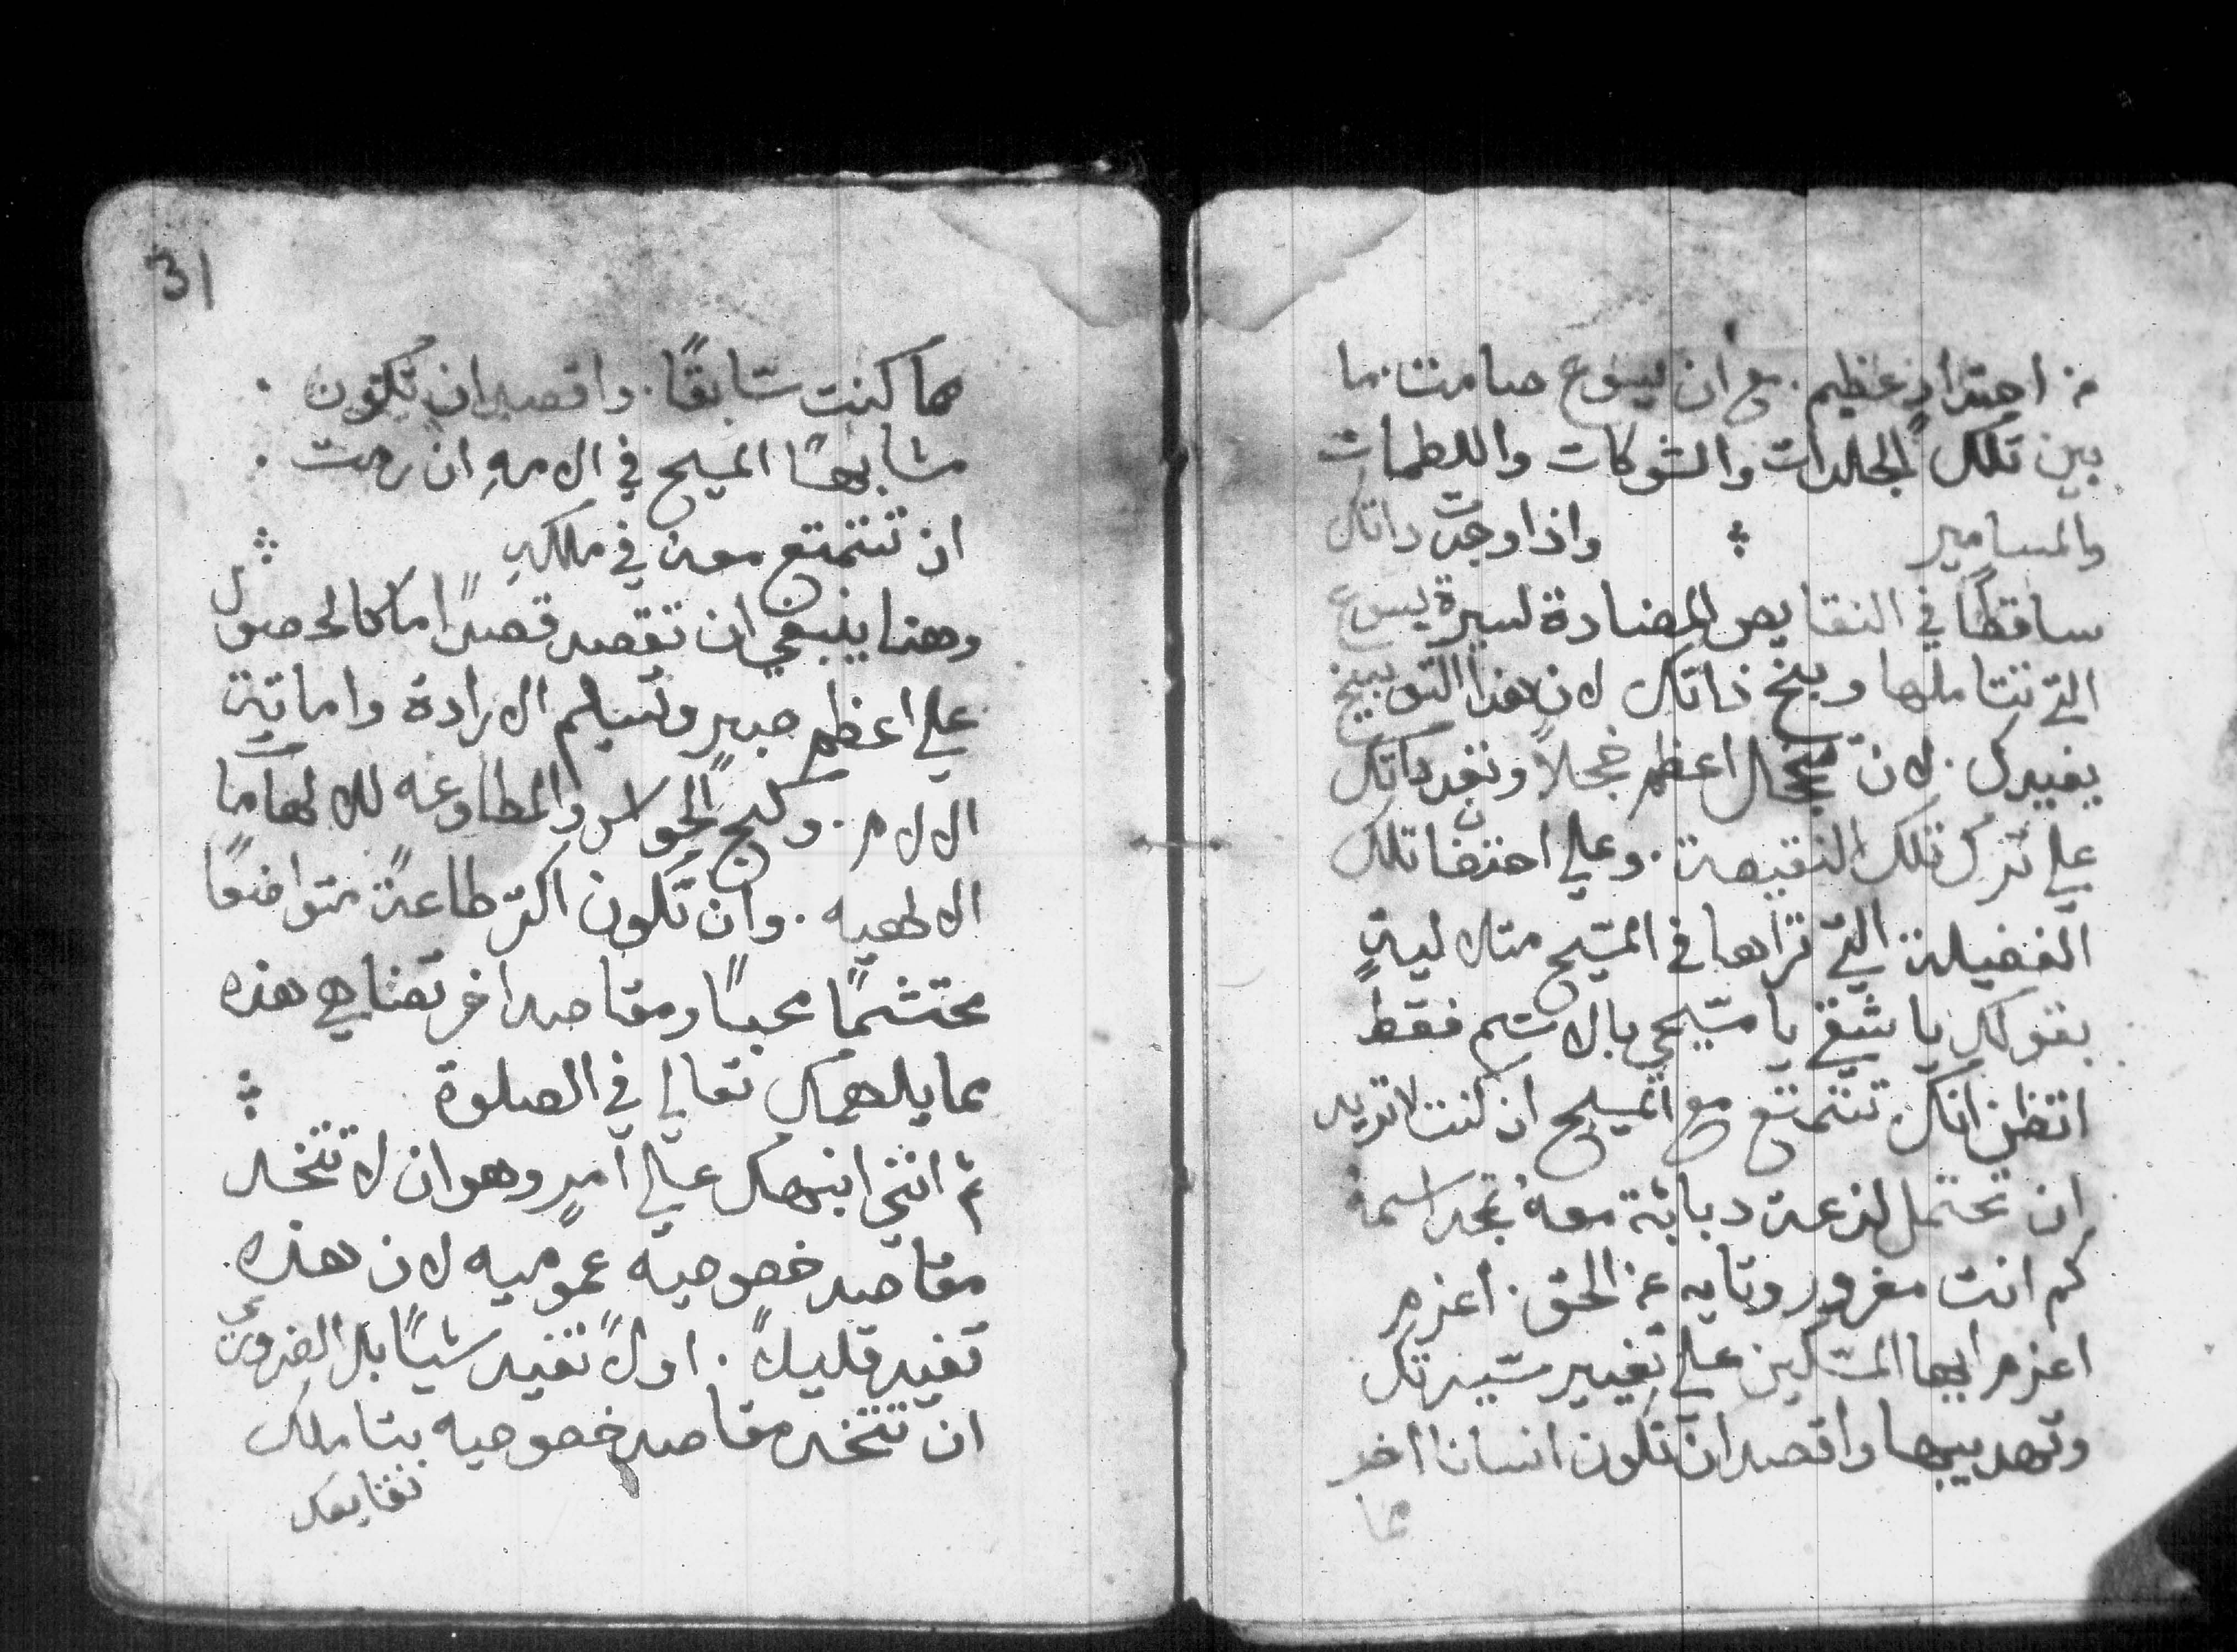 من احتدادٍ عظيم. مع ان يسوع صامت ما
بين تلك الجلدات والشوكات واللطمات
والمسامير ∴ واذا وجدت داتك
ساقطًا في النقايص المضادة لسيرة يسوع
التي تتاملها وبخ ذاتك لان هذا التوبيخ
يفيدك. لان تخجل اعظم خجلاً وتغر داتك
علي ترك تلك النقيصة. وعلي احتضا تلك
الفضيلة التي تراها في المسيح مثلا ليةٍ
بقولك يا شقي يا مسيحي بالاسم فقط
اتظن انك تتمتع مع المسيح ان كنت لا تريد
ان تحتمل لذعة دبابة معه تجد اسمه
كم انت مغرور وتايه عن الحق. اعزم
اعزم ايها المسكين علي تغيير سيرتك
وتهديبها واقصد ان تكون انسانا اخر
مما
مما كنت سابقًا. واقصد ان تكون
مشابهًا المسيح في الامهِ ان رمت
ان تتمتع معه في ملكهِ ∴
وهنا ينبغي ان تقصد قصدًا ما كالحصول
علي اعظم صبرٍ وتسليم الارادة واماتة
الالام. وكبح الحواس والمطاوعه للالهامات
الالهيه. وان تكون اكتر طاعةً متواضعًا
محتشمًا محبًا ومقاصد اخر تضاهي هذه
مما يلهمك تعالي في الصلوة ∴
ثم انني انبهك علي امرٍ وهو ان لا تتخد
مقاصد خصوصيه عموميه لان هذه
تفيد قليلاً. اولاً تفيد شيًا بل الضروري
ان تتخد مقاصد خصوصيه بتاملك
نقايصك
31